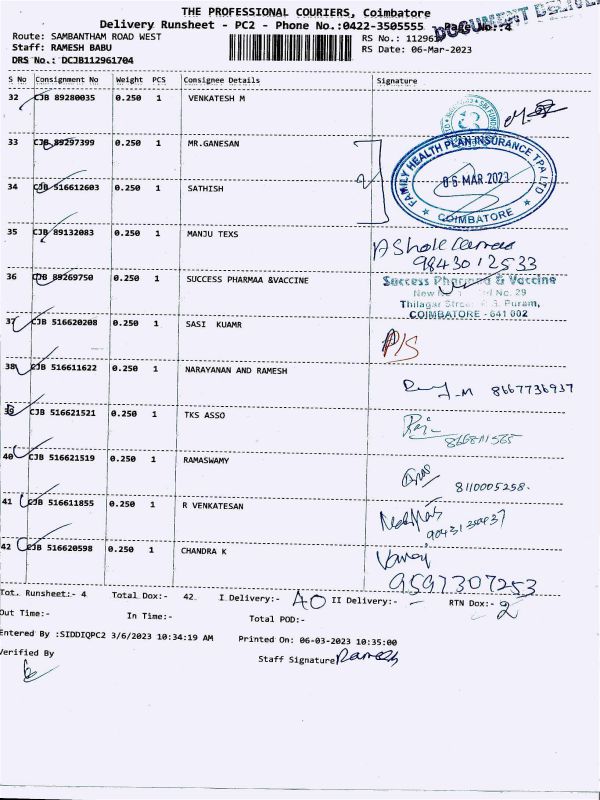 THE PROFESSIONAL COURIERS, Coimbatore
Delivery Runsheet - PC2 - Phone No.:0422-3505555 Page No.:4
DOCUMENT
Route: SAMBANTHAM ROAD WEST RS No.: 11296
Staff: RAMESH BABU RS Date: 06-Mar-2023
DRS No.: DCJB112961704
S No Consignment No Weight PCS Consignee Details Signature
32 CJB 89280035 0.250 1 VENKATESH M
33 CJB 89297399 0.250 1 MR.GANESAN
FAMILY HEALTH PLAN INSURANCE TPA LTD
06 MAR 2023
COIMBATORE
34 CJB 516612603 0.250 1 SATHISH
35 CJB 89132083 0.250 1 MANJU TEXS
9843012533
36 CJB 89269750 0.250 1 SUCCESS PHARMAA &VACCINE
Success Pharmaa & Vaccine
New No. 29
Thilagar Street R.S. Puram,
COIMBATORE - 641 002
37 CJB 516620208 0.250 1 SASI KUAMR
38 CJB 516611622 0.250 1 NARAYANAN AND RAMESH
8667736937
39 CJB 516621521 0.250 1 TKS ASSO
40 CJB 516621519 0.250 1 RAMASWAMY
8110005258.
41 CJB 516611855 0.250 1 R VENKATESAN
42 CJB 516620598 0.250 1 CHANDRA K
9597307253
Tot. Runsheet:- 4 Total Dox:- 42 I Delivery:- 40 II Delivery:- - RTN Dox:- 2
Out Time:- In Time:- Total POD:-
Entered By :SIDDIQPC2 3/6/2023 10:34:19 AM Printed On: 06-03-2023 10:35:00
Verified By Staff Signature Ramesh